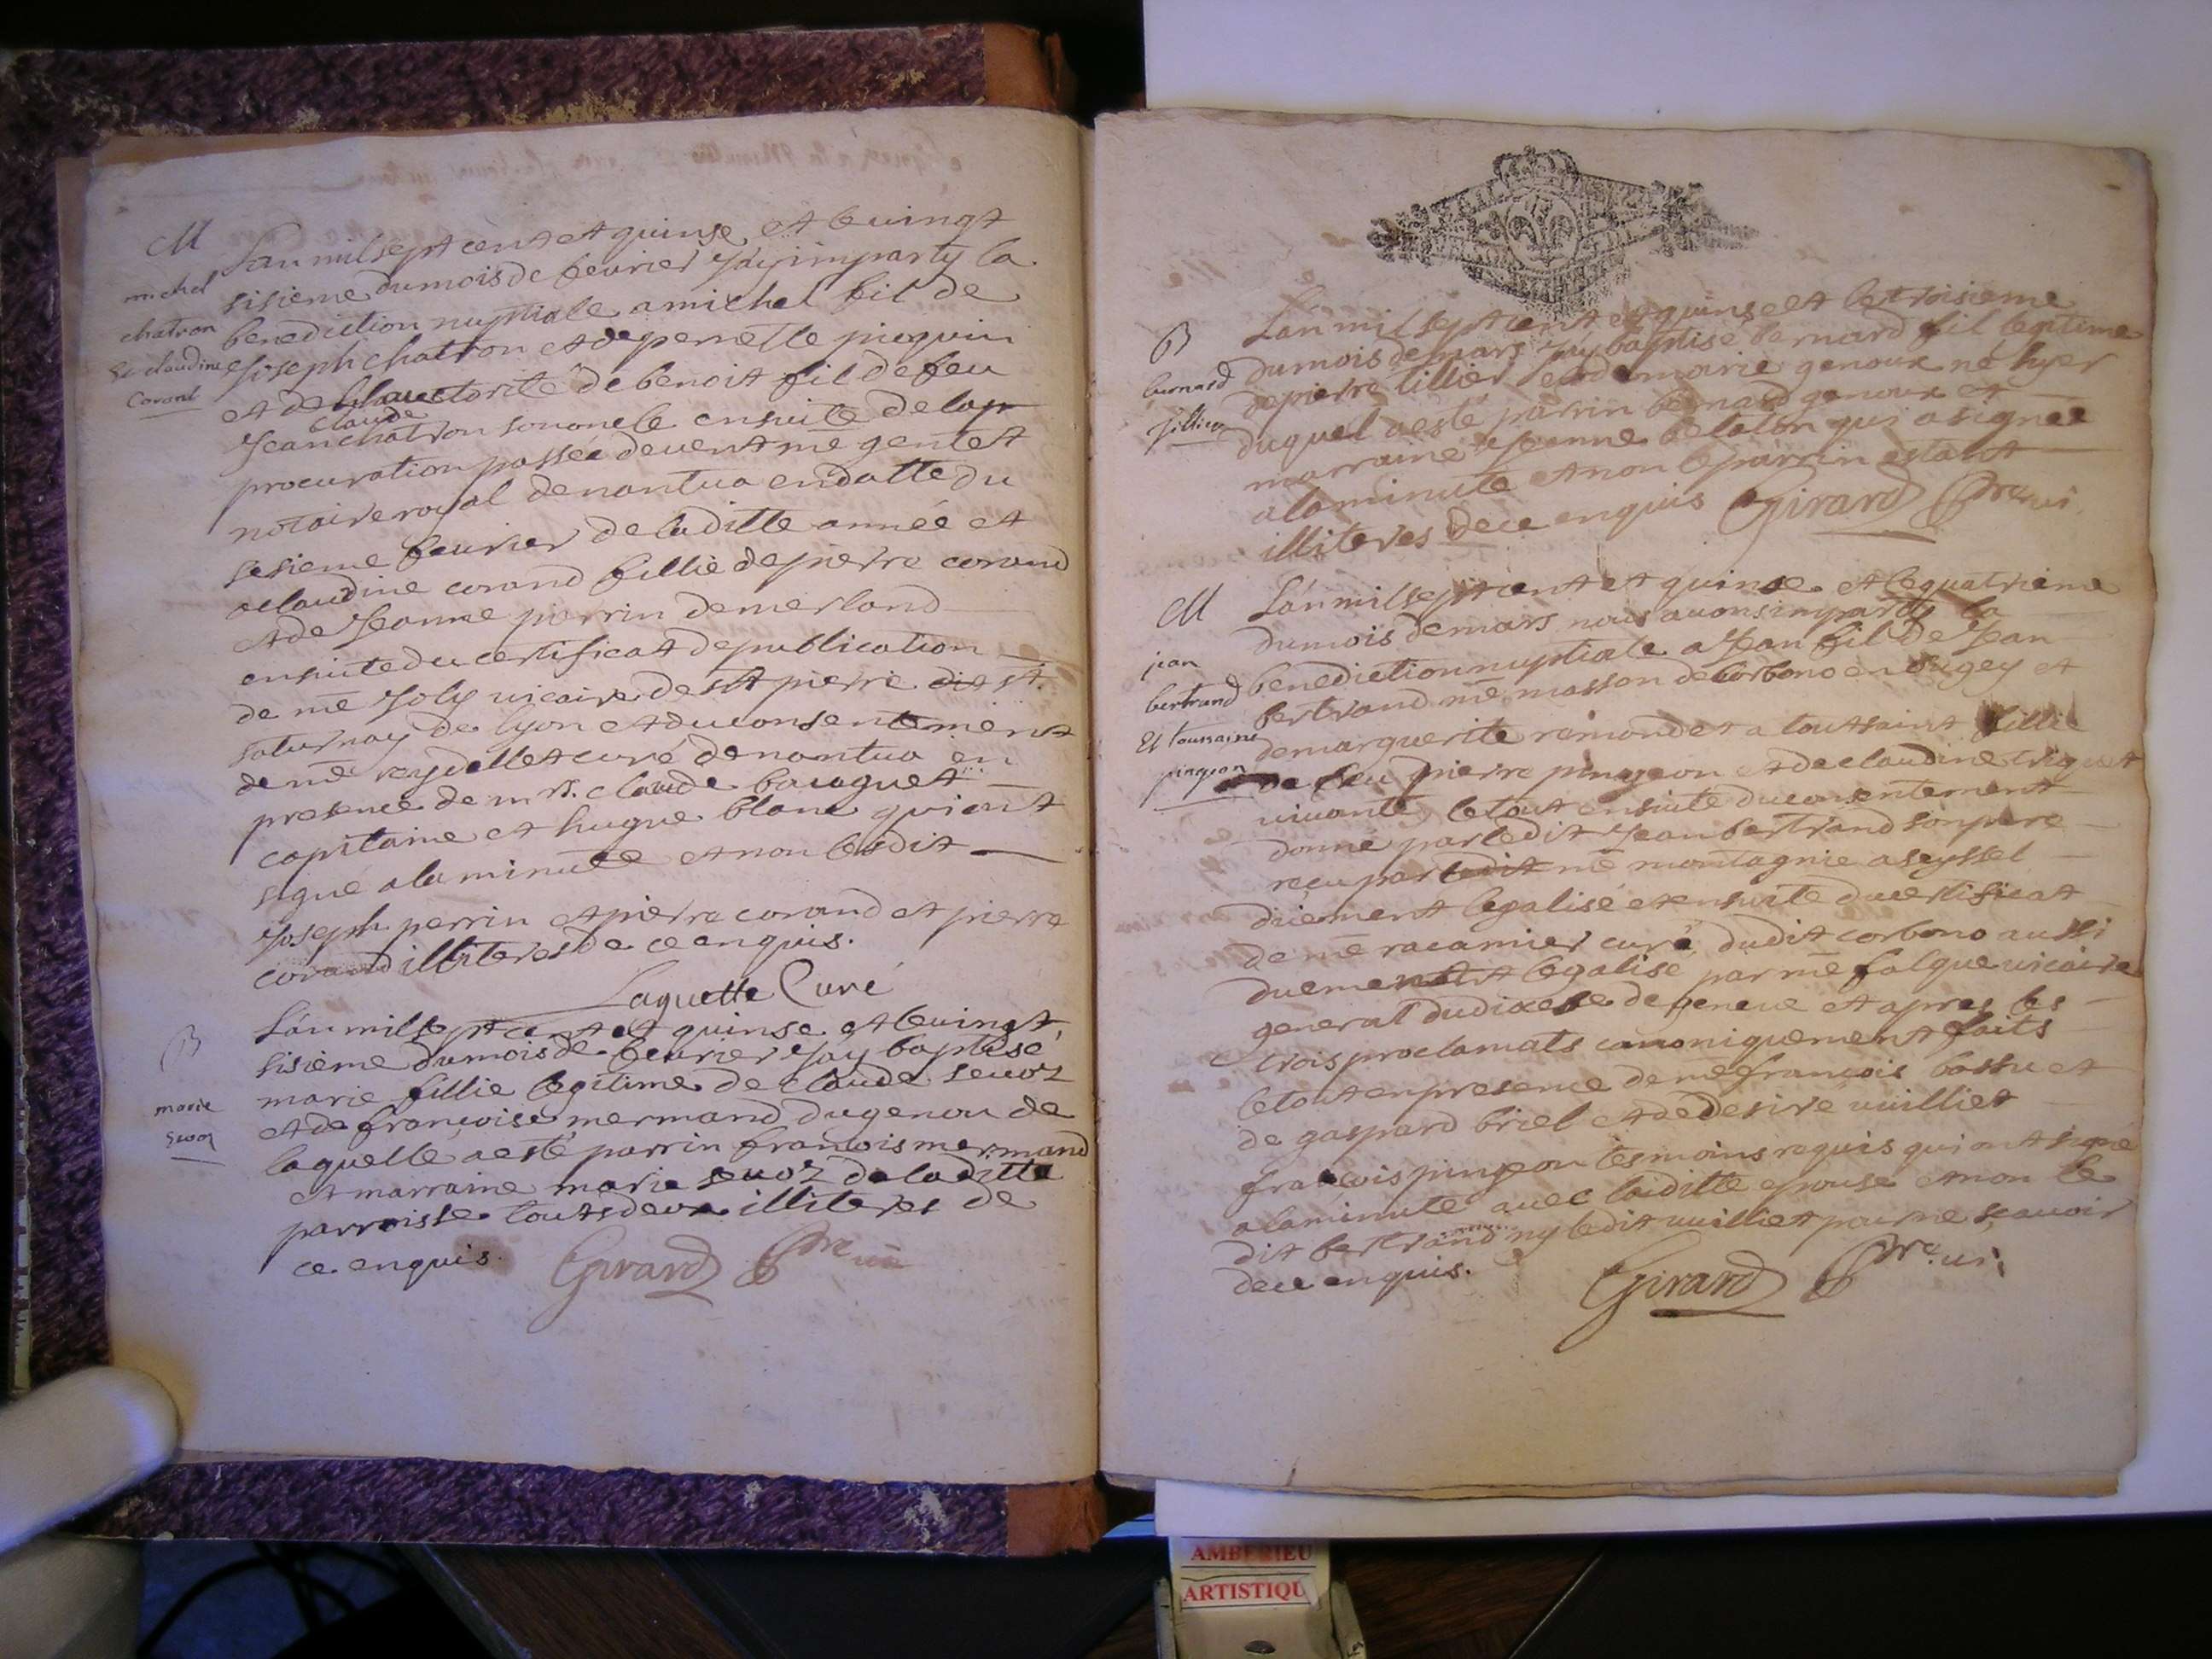 M
michel
chatron
Et claudine
Corand
L'an mil sept cent et quinse et le vingt
sisieme du mois de fevrier j'ay imparty la
benediction nuptiale a michel fil de
joseph chatron et de pernette joquin
et de l'auctorité de benoit fil de feu
claude
jean chatron son oncle ensuite de la
procuration passée devent me gentet
notaire royal de nantua en datte du
sesieme fevrier de laditte année et
a claudine corand fillie de pierre corand
et de jeanne perrin de merland
ensuite du certificat de publication
de me joly vicaire de st pierre et st
saturnay de lyon et du consentement
de me reydellet curé de nantua en
presence de mrs. claude bacoguet
capitaine et hugue blanc qui ont
signé a la minute et non lesdit
joseph perrin et pierre corand et pierre
corand illiteres de ce enquis.
Laguette Curé
B
marie
sevoz
L'an mil sept cent et quinse et le vingt
sisieme du mois de fevrier j'ay baptisé
marie fillie legitime de claude sevoz
et de françoise mermand du genou de
laquelle a esté parrin francois mermand
et marraine marie sevoz de laditte
parroisse touts deux illiteres de
ce enquis. Girard Pre vi
B
bernard
fillier
L'an mil sept cent et quinse et le troisieme
du mois de mars j'ay baptisé bernard fil legitime
de pierre tillier et de marie genoux né hyer
duquel a esté parrin bernard genoux et
marraine jeanne belaton qui a signée
a la minute et non le parrin estant
illiteres de ce enquis Girard Pre vi.
M
jean
bertrand
Et toussaine
pingeon
L'an mil sept cent et quinse et le quatrieme
du mois de mars nous avons imparty la
benediction nuptiale a jean fil de jean
bertrand me masson de corbono en bugey et
de marguerite remond et a toutsaint fillie
de feu pierre pingeon et de claudine triquet
vivante le tout ensuite du consentement
donné par ledit jean bertrand son pere
reçu par ledit me montagnie a seyssel
duement legalisé et ensuite du certificat
de me racamier curé dudit corbono aussi
duement legalisé par me falque vicaire
general du dioxese de geneve et apres les
trois proclamats canoniquement faits
le tout en presence de me françois bossu et
de gaspard briel et de desiré vuilliet
françois pingeon tesmoins requis qui ont signé
a la minute avec laditte epouse et non le
dit bertrand ny ledit vuilliet pour ne scavoir
de ce enquis. Girard Pre. vi.
AMBERIEU
ARTISTIQU